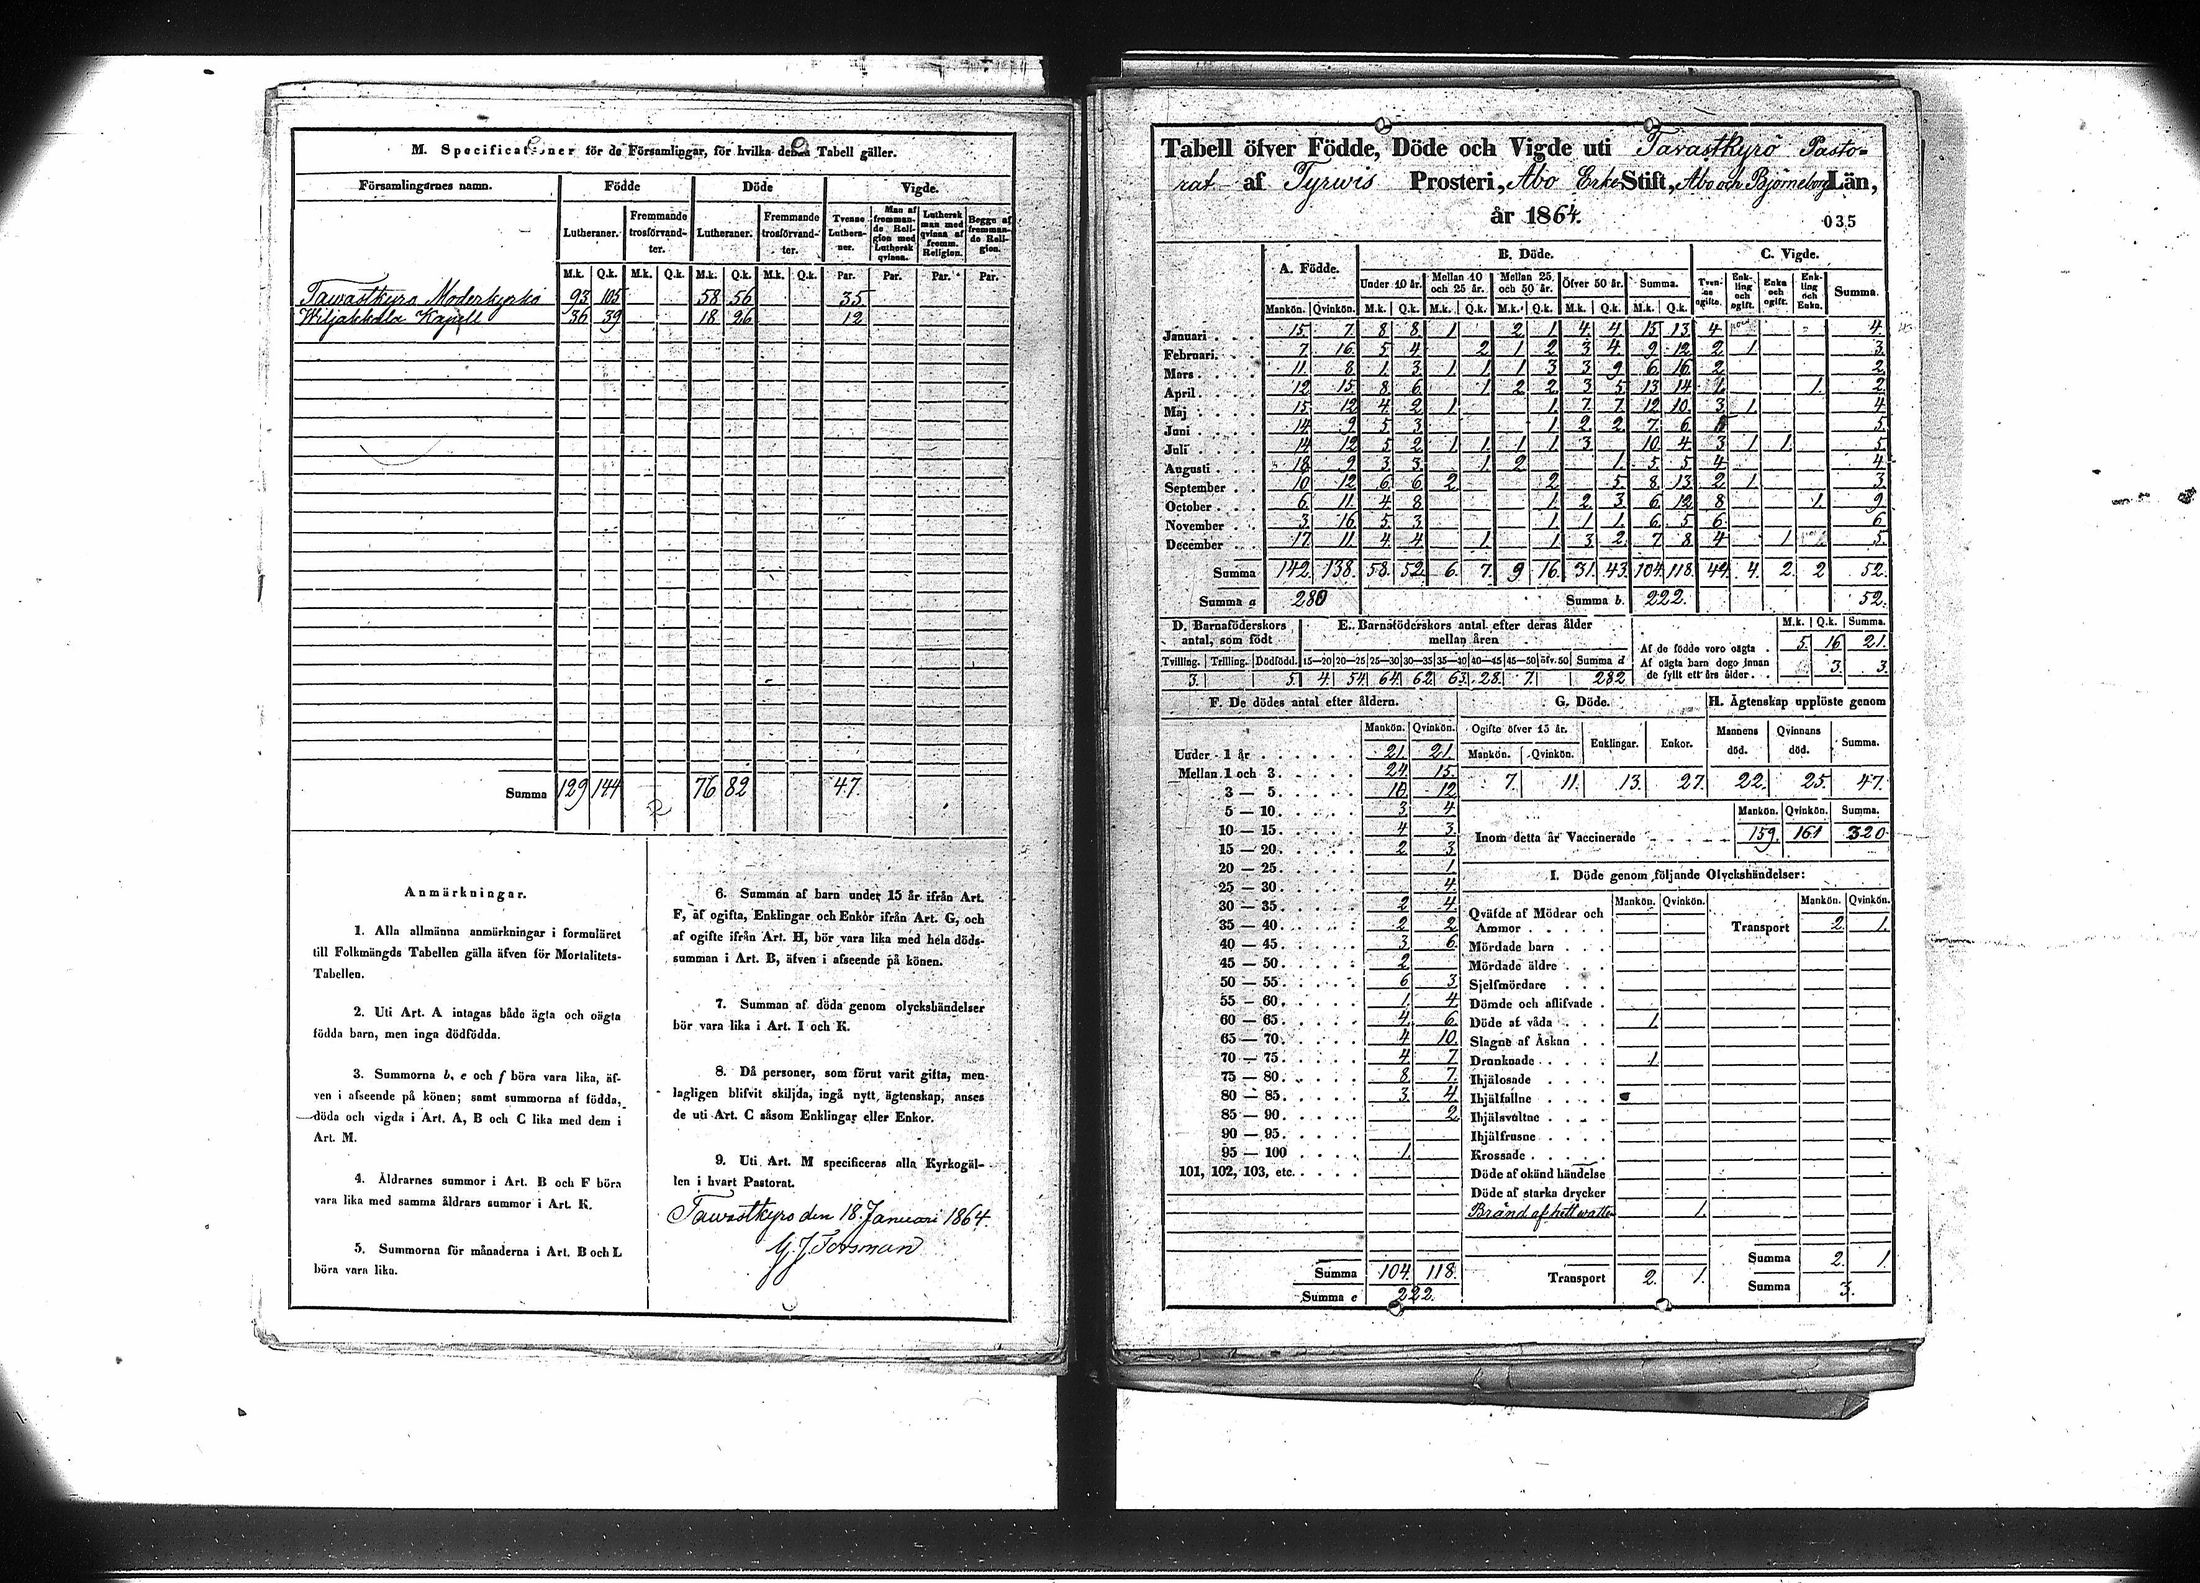 M. Specificationer för de Församlingar, för hvilka denna Tabell gäller.
Församlingarnes namn. Födde Döde Vigde.
Lutheraner. Fremmande trosförvandter. Lutheraner. Fremmande trosförvandter. Tvenne Lutheraner. Man af fremmande Religion med Luthersk qvinna. Luthersk man med qvinna af fremm. Religion. Begge af fremmande Religion.
M.k. Q.k. M.k. Q.k. M.k. Q.k. M.k. Q.k. Par. Par. Par. Par.
Tawastkyro Moderkyrka 93 105 58 56 35
Wiljakkala Kapell 36 39 18 26 12
Summa 129 144 76 82 47.
Anmärkningar.
1. Alla allmänna anmärkningar i formuläret
till Folkmängds Tabellen gälla äfven för Mortalitets-
Tabellen.
2. Uti Art. A intagas både ägta och oägta
födda barn, men inga dödfödda.
3. Summorna b, e och f böra vara lika, äf-
ven i afseende på könen; samt summorna af födda,
döda och vigda i Art. A, B och C lika med dem i
Art. M.
4. Åldrarnes summor i Art. B och F böra
vara lika med samma åldrars summor i Art. K.
5. Summorna för månaderna i Art. B och L
böra vara lika.
6. Summan af barn under 15 år ifrån Art.
F, af ogifta, Enklingar och Enkor ifrån Art. G, och
af ogifte ifrån Art. H, bör vara lika med hela döds-
summan i Art. B, äfven i afseende på könen.
7. Summan af döda genom olyckshändelser
bör vara lika i Art. I och K.
8. Då personer, som förut varit gifta, men
lagligen blifvit skiljda, ingå nytt ägtenskap, anses
de uti Art. C såsom Enklingar eller Enkor.
9. Uti Art. M specificeras alla Kyrkogäl-
len i hvart Pastorat.
Tawastkyro den 18 Januari 1864.
G. J. Forsman
Tabell öfver Födde, Döde och Vigde uti Tavastkyrö Pasto-
rat af Tyrwis Prosteri, Åbo Erke Stift, Åbo och Björneborgs Län,
år 1864.
035
A. Födde. B. Döde. C. Vigde.
Under 10 år. Mellan 10 och 25 år. Mellan 25 och 50 år. Öfver 50 år. Summa. Tvenne ogifta. Enkling och ogift. Enka och ogift. Enkling och Enka. Summa.
Mankön. Qvinkön. M.k. Q.k. M.k. Q.k. M.k. Q.k. M.k. Q.k. M.k. Q.k.
Januari 15 7 8 8 1 2 1 4 4 15 13 4 4
Februari 7 16 5 4 2 1 2 3 4 9 12 2 1 3
Mars 11 8 1 3 1 1 1 3 3 9 6 16 2 2
April 12 15 8 6 1 2 2 3 5 13 14 1 1 2
Maj 15 12 4 2 1 1 7 7 12 10 3 1 4
Juni 14 9 5 3 1 2 2 7 6 5
Juli 14 12 5 2 1 1 1 1 3 10 4 3 1 1 5
Augusti 18 9 3 3 1 2 1 5 5 4 4
September 10 12 6 6 2 2 5 8 13 2 1 3
October 6 11 4 8 1 2 3 6 12 8 1 9
November 3 16 5 3 1 1 1 6 5 6 6
December 17 11 4 4 1 1 3 2 7 8 4 1 5
Summa 142 138 58 52 6 7 9 16 31 43 104 118 44 4 2 2 52
Summa a 280 Summa b. 222. 52.
D. Barnaföderskors antal, som födt
E. Barnaföderskors antal efter deras ålder mellan åren
M.k. Q.k. Summa.
Af de födde voro oägta 5 16 21
Af oägta barn dogo innan de fyllt ett års ålder 3 3
Tvilling. Trilling. Dödfödd. 15—20 20—25 25—30 30—35 35—40 40—45 45—50 öfv. 50 Summa d
3. 5. 4. 54. 64. 62. 63. 28. 7. 282
F. De dödes antal efter åldern.
Mankön. Qvinkön.
Under 1 år 21 21
Mellan 1 och 3 24 15
3 — 5 10 12
5 — 10 3 4
10 — 15 4 3
15 — 20 2 3
20 — 25 1
25 — 30 4
30 — 35 2 4
35 — 40 2 2
40 — 45 3 6
45 — 50 2
50 — 55 6 3
55 — 60 1 4
60 — 65 4 6
65 — 70 4 10
70 — 75 4 7
75 — 80 8 7
80 — 85 3 4
85 — 90 2
90 — 95
95 — 100 1
101, 102, 103, etc.
Summa 104. 118.
Summa e 222.
G. Döde. H. Ägtenskap upplöste genom
Ogifte öfver 15 år. Enklingar. Enkor. Mannens död. Qvinnans död. Summa.
Mankön. Qvinkön.
7. 11. 13. 27. 22. 25. 47.
Mankön. Qvinkön. Summa.
Inom detta år Vaccinerade 159 161 320
I. Döde genom följande Olyckshändelser:
Mankön. Qvinkön. Mankön. Qvinkön.
Qväfde af Mödrar och Ammor Transport 2. 1.
Mördade barn
Mördade äldre
Sjelfmördare
Dömde och aflifvade
Döde af våda 1
Slagne af Åskan
Drunknade 1
Ihjälosade
Ihjälfallne
Ihjälsvultne
Ihjälfrusne
Krossade
Döde af okänd händelse
Döde af starka drycker
Bränd af hett watten 1.
Summa 2. 1.
Transport 2. 1. Summa 3.